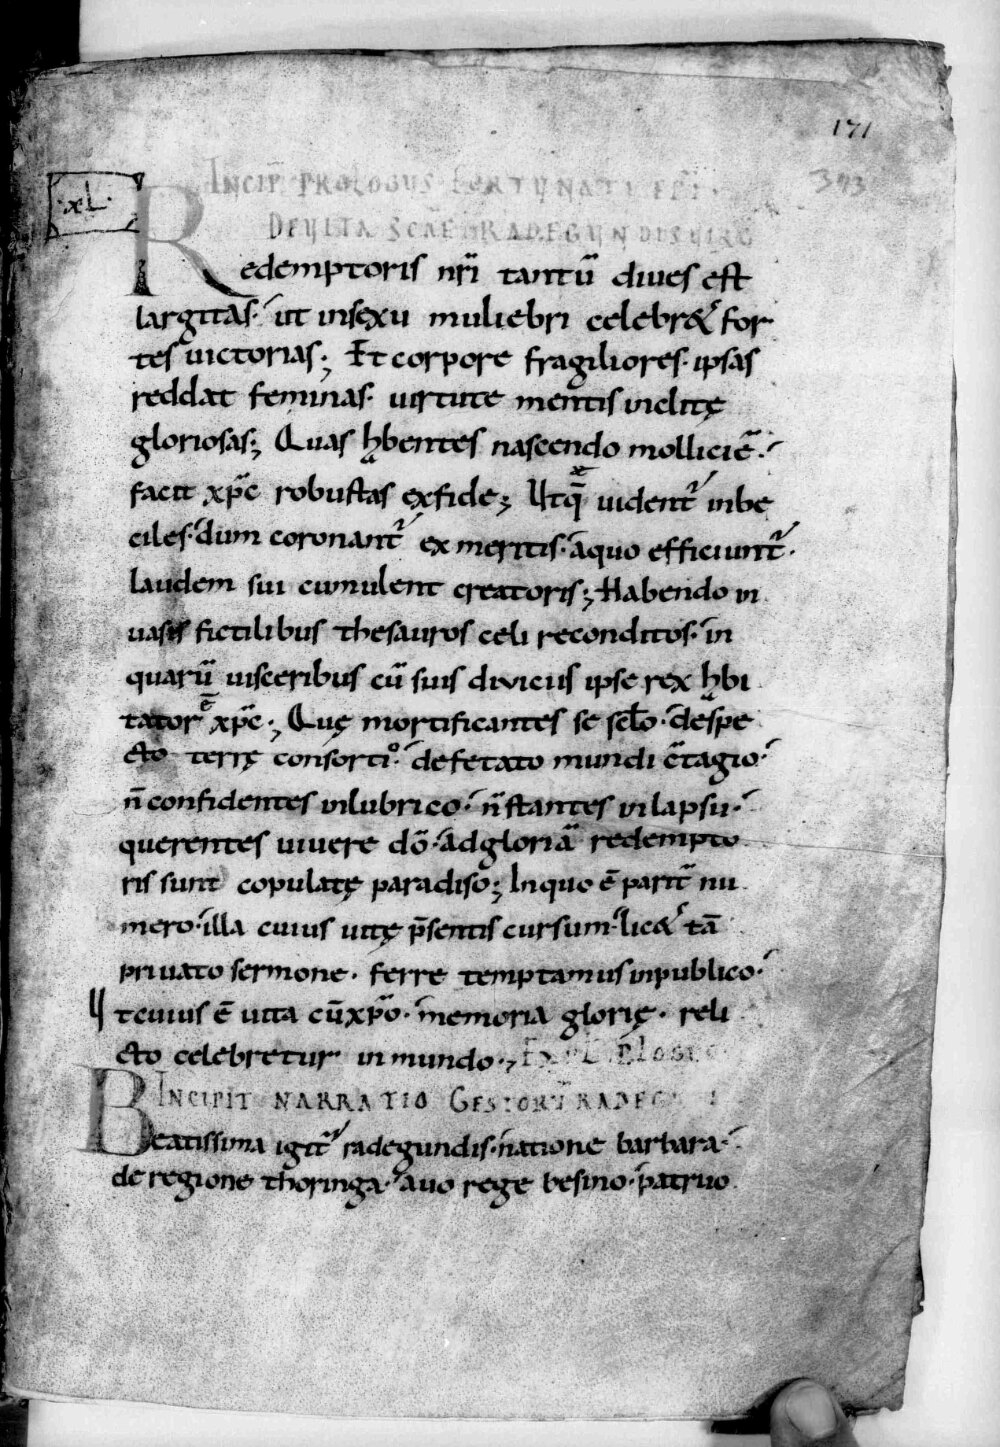 171
373
·xL·
INCIP̄ PROLOGUS FORTUNATI EP̄I·
DEVITA SCĀE RADEGUNDIS VIRG
Redemptoris nr̄i tantū diues est
largitas· ut insexu muliebri celebr& for
tes uictorias; Et corpore fragiliores· ipsas
reddat feminas· uirtute mentis inclitę
gloriosas; Quas hƀentes nascendo molliciē·
facit xp̄c robustas exfide; Utq̄ę uident̄ inbe
ciles· dum coronant̄ ex meritis· aquo efficiunt̄·
laudem sui cumulent creatoris; Habendo in
uasis fictilibus thesauros celi reconditos· in
quarū uisceribus cū suis diuicius ipse rex hƀi
tator ē xp̄c; Quę mortificantes se sc̄lo· despe
cto terrę consortio· defecato mundi c̄tagio·
n̄ confidentes inlubrico· n̄ stantes inlapsu·
querentes uiuere dō· adgloriā redempto
ris sunt copulatę paradiso; Inquo ē parit̄ nu
mero· illa cuius uitę p̄sentis cursum· lic& tā
priuato sermone· ferre temptamus inpublico·
Ut cuius ē uita cū xp̄o· memoria glorię· reli
cto celebretur in mundo·, EXPL P̄LOGUS·
INCIPIT NARRATIO GESTORŪ RADEG
Beatissima igit̄ radegundis· natione barbara·
de regione thoringa· auo rege besino· patruo